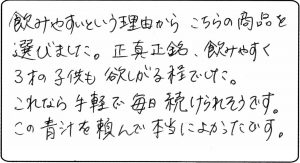 飲みやすいという理由から こちらの商品を
選びました。正真正銘、飲みやすく
3才の子供も 欲しがる程でした。
これなら 手軽で 毎日 続けられそうです。
この 青汁を 頼んで 本当に よかったです。